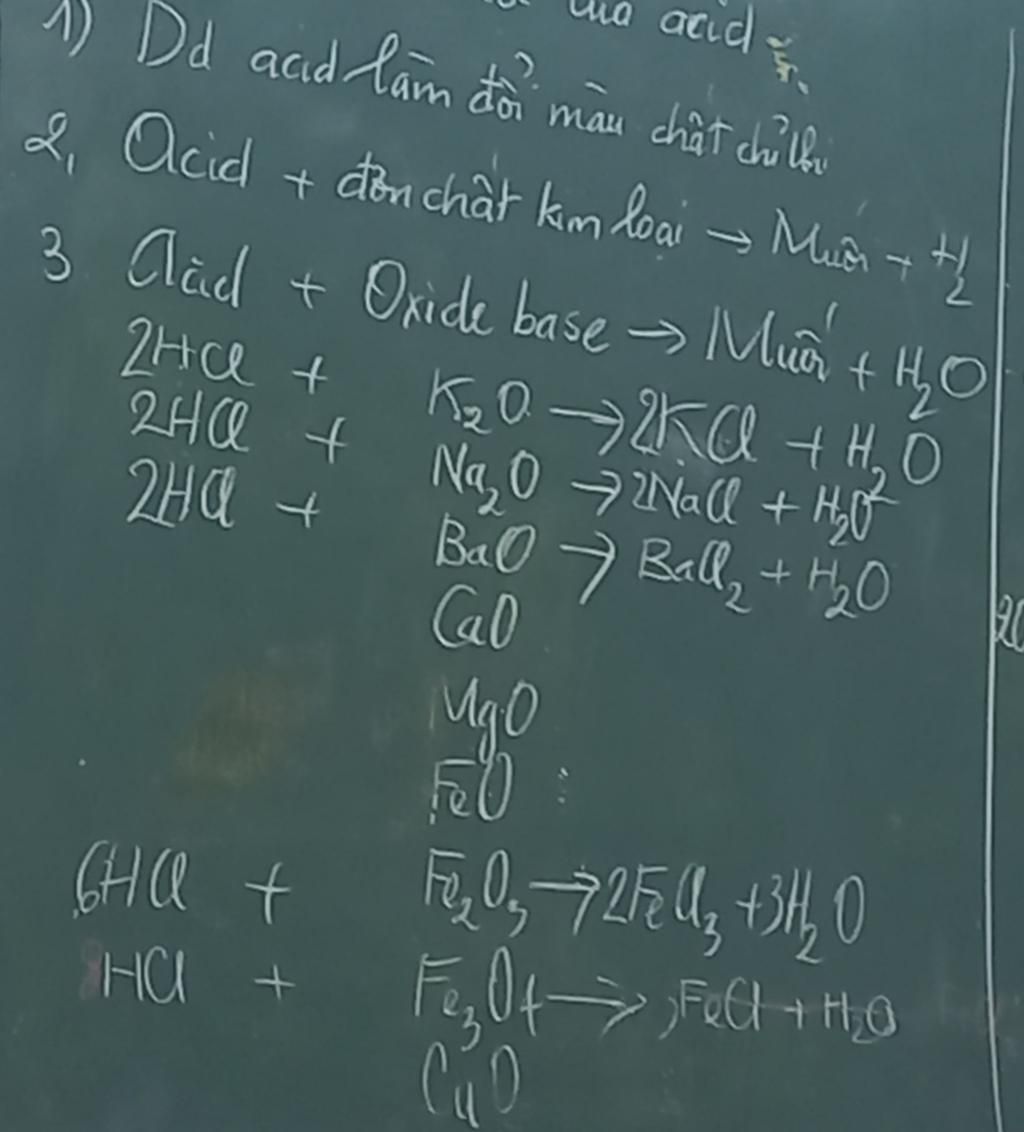 của acid
1) Dd acid làm đổi màu chất chỉ thị
2, Acid + đơn chất kim loại → Muối + H₂
3 Acid + Oxide base → Muối + H₂O
2HCl + K₂O → 2KCl + H₂O
2HCl + Na₂O → 2NaCl + H₂O
2HCl + BaO → BaCl₂ + H₂O
CaO
MgO
FeO :
6HCl + Fe₂O₃ → 2FeCl₃ + 3H₂O
HCl + Fe₃O₄ → FeCl + H₂O
CuO